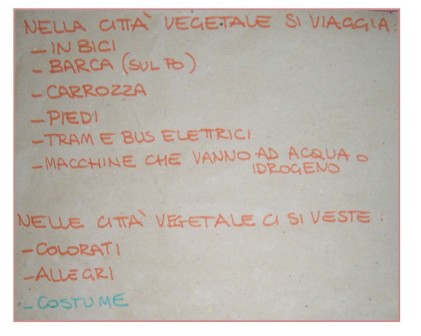 NELLA CITTÀ VEGETALE SI VIAGGIA:
- IN BICI
- BARCA (SUL PO)
- CARROZZA
- PIEDI
- TRAM E BUS ELETTRICI
- MACCHINE CHE VANNO AD ACQUA O
IDROGENO
NELLE CITTÀ VEGETALE CI SI VESTE:
- COLORATI
- ALLEGRI
- COSTUME